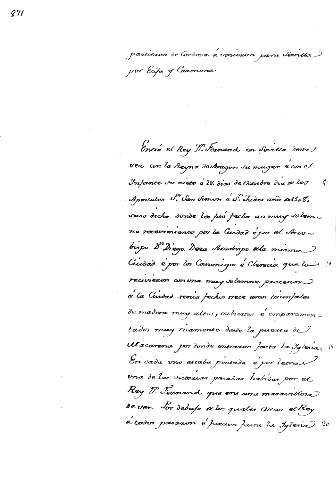 partieron de Cordova é vinieron para Sevilla
por Ecija y Carmona.
Entró el Rey Dn. Fernando en Sevilla
ver con la Reyna de Aragon su muger é con el
Infante su nieto á 28. dias de Octubre dia de los
Apostoles Sn. Simon é Sn. Judas año de 1508.
donde les fué fecho un muy solem-
ne recevimiento por la Ciudad é por el Arzo-
bispo Dn. Diego Deza Arzobispo de la misma
Ciudad é por los Canonigos é Clerecia que lo
recivieron con una muy solemne procesion
é la Ciudad tenia fechos trece arcos triunfales
de madera muy altos, cubiertos é emparamen-
tados muy ricamente desde la puerta de
Macarena por donde entraron hasta la Iglesia
En cada uno estaba pintada é por letras
una de las victorias pasadas habidas por el
Rey Dn. Fernando, que era una maravillosa
de ver. Por debajo de los quales arcos el Rey
é todos pasaron é fueron hasta la Iglesia